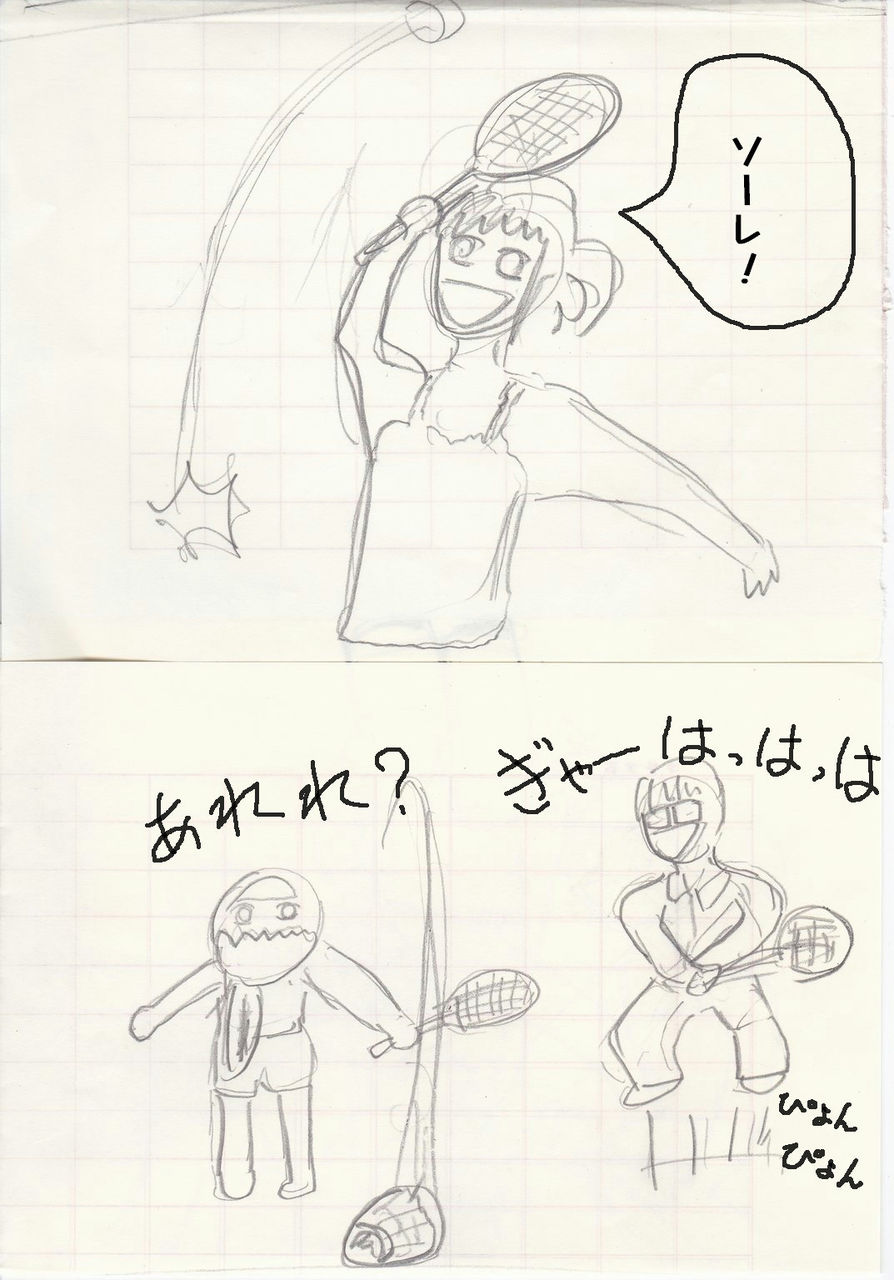 ソーレ!
あれれ?
ぎゃーはっはっは
ぴょん
ぴょん